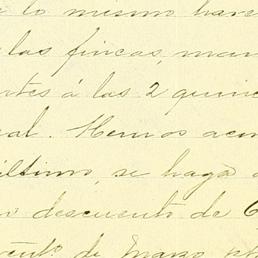 lo mismo hare
las fincas, man
tes á las 2 quinc
ual. Hemos acor
último, se haga
descuento de 6
de Marzo